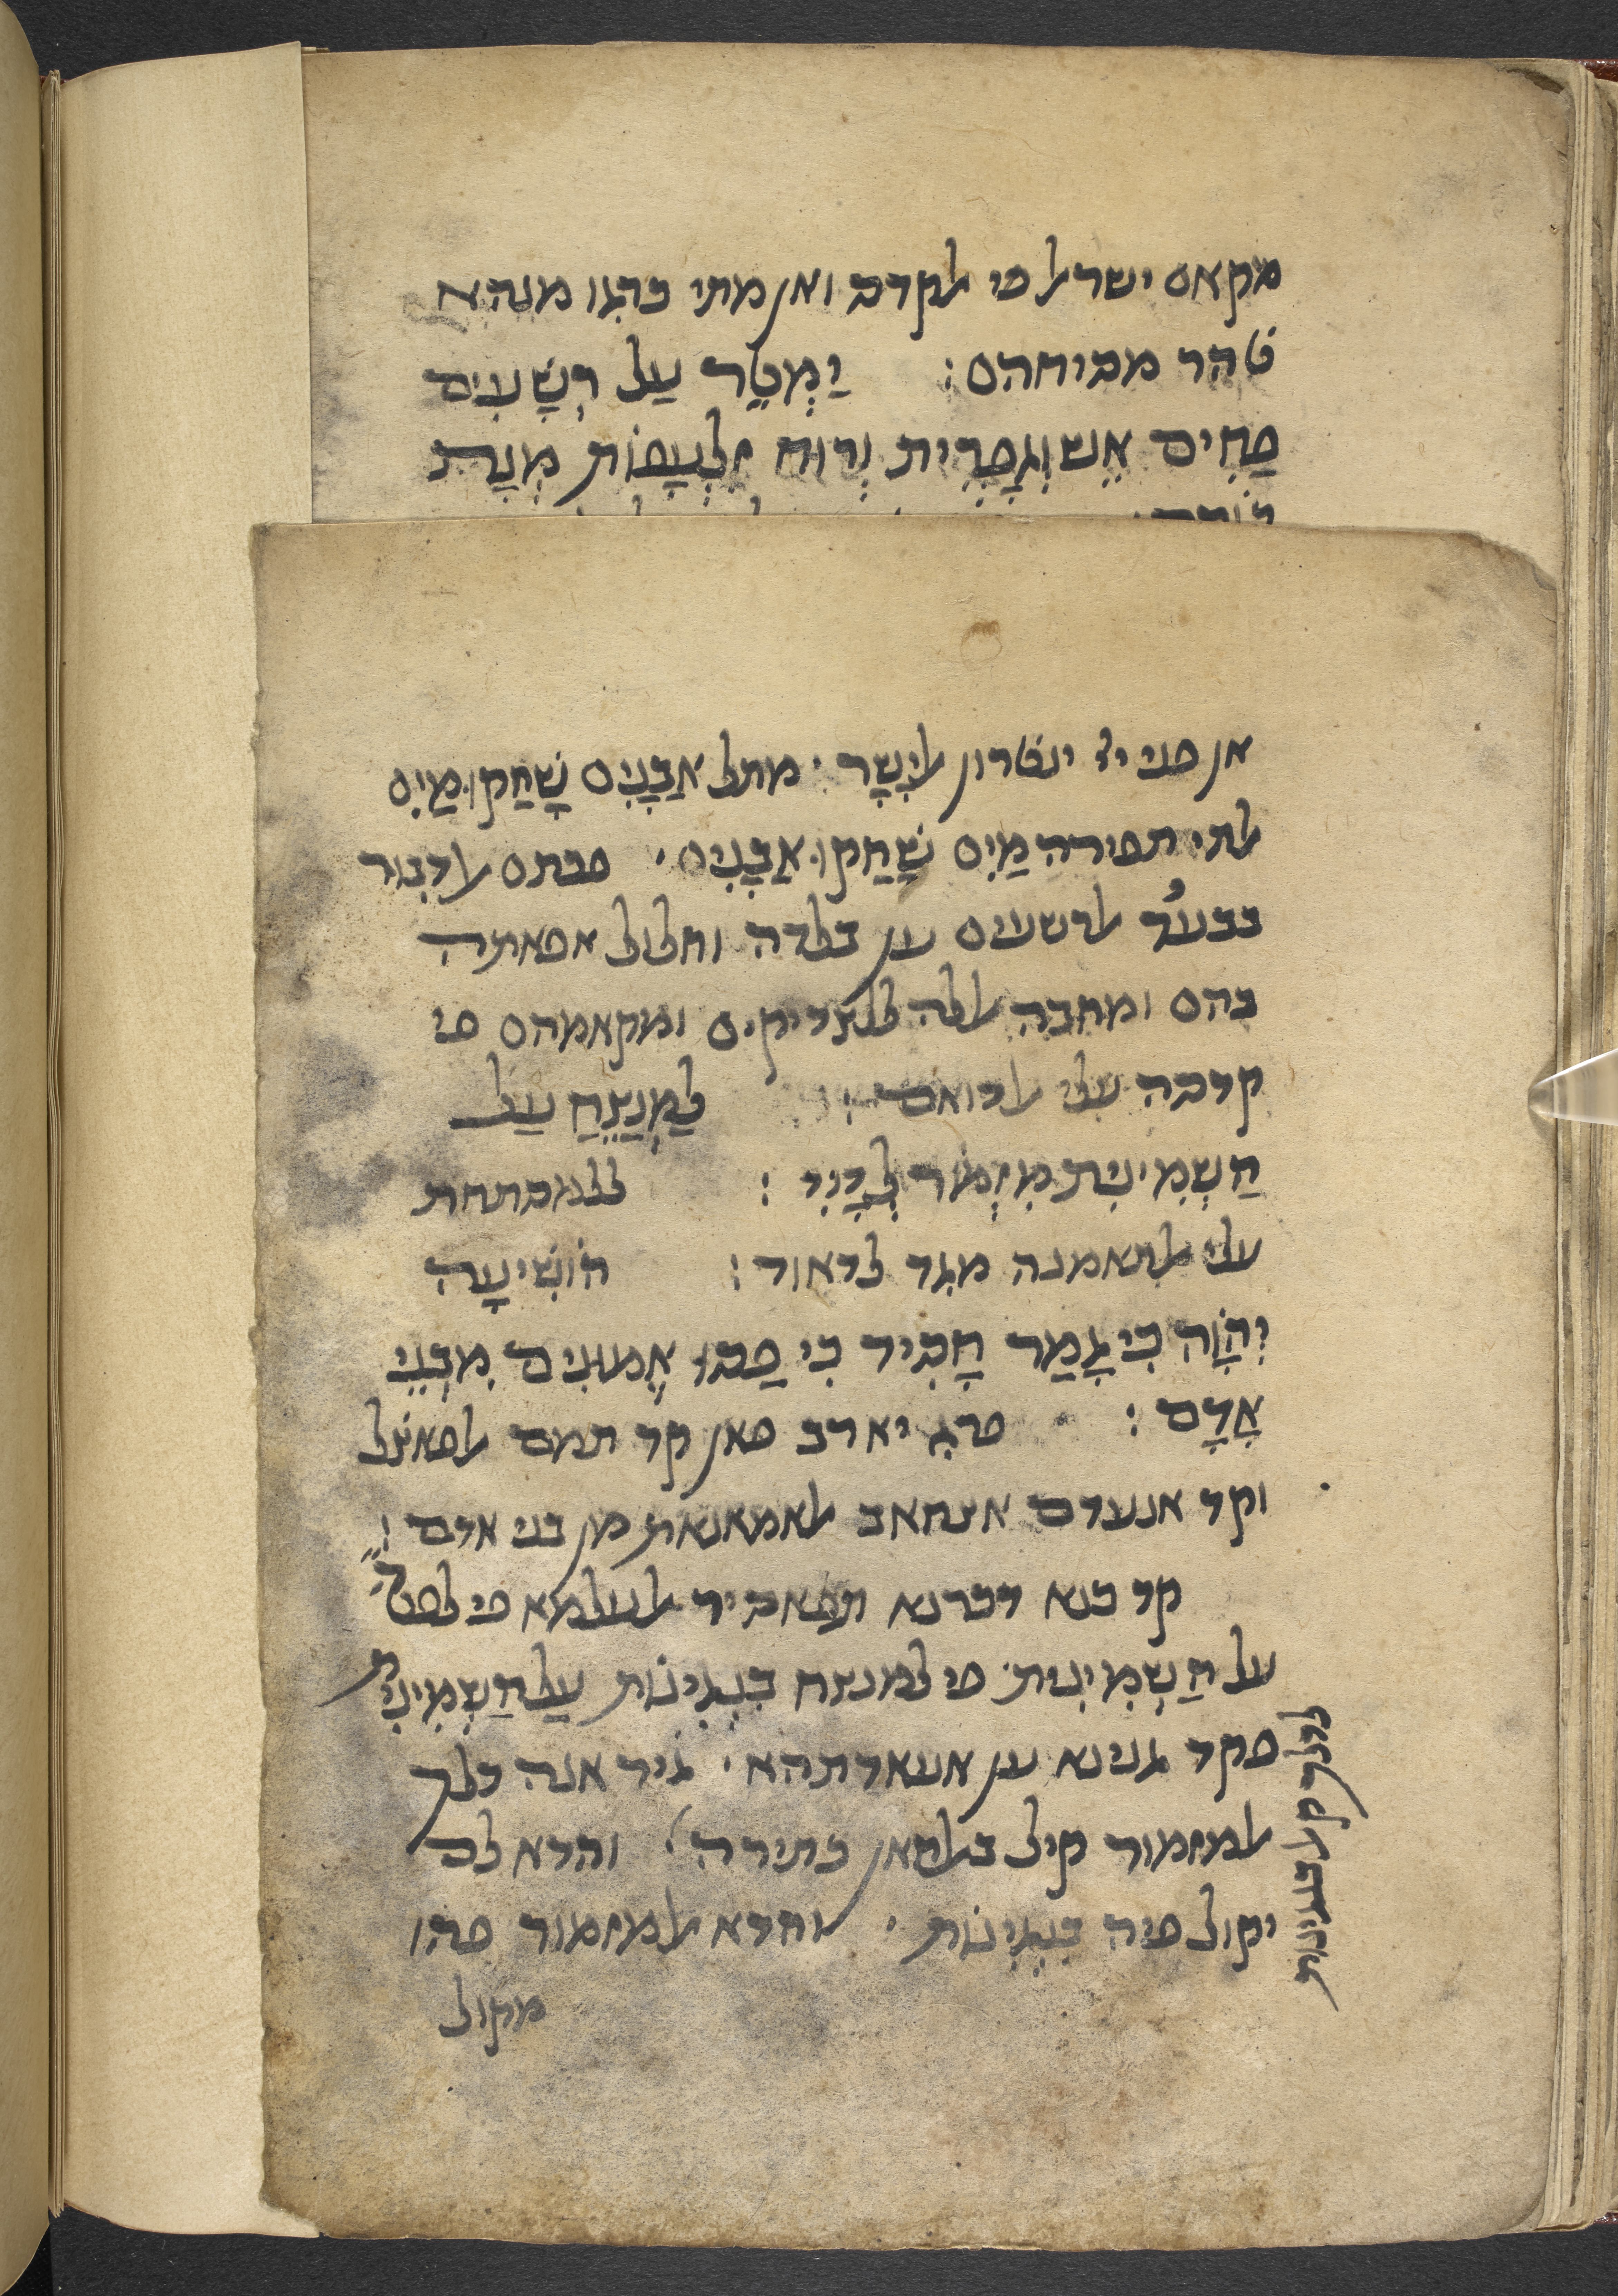 מקאם ישראל פי אלקדם ואן מתי כרגו מנהא
טהר מביחהם: יַמְטֵר עַל רְשָׁעִים
פַּחִים אֵשׁ וְגָפְרִית וְרוּחַ זִלְעָפוֹת מְנָת
אן פני ייי ינטרון אליָשָׁר ׳ מתל אֲבָנִים שָׁחֲקוּ מַיִם
אלתי תפסירה מַיִם שָׁחֲקוּ אֲבָנִים ׳ פכתם אלדבור
בבעד אלרשעים ען בלדה וחלול אפאתה
בהם ומחבה אללה ללצדיקים ומקאמהם פי
קדסה עלי אלדואם: לַמְנַצֵּחַ עַל
הַשְּׁמִינִית מִזְמוֹר לְדָוִד: ללמסתחת
עלי אלתאמנה מגד לדאוד: הוֹשִׁיעָה
יְהוָה כִּי גָמַר חָסִיד כִּי פַסּוּ אֱמוּנִים מִבְּנֵי
אָדָם: פרג יא רב פאן קד תמם אלפאצל
וקד אנעדם אצחאב אלאמאנאת מן בני אדם:
קד כנא דכרנא תפאסיר אלעלמא פי לפט
על הַשְּׁמִינִית ׳ פי למנצח בִּנְגִינוֹת עַל הַשְּׁמִינִית
פקד גנינא ען אעאדתהא ׳ גיר אנה דלך
אלמזמור קיל באלחאן כתירה ׳ והדא לם
יקול פיה בִּנְגִינוֹת ׳ והדא אלמזמור פהו
מקול
לדלך קאל בנגינות